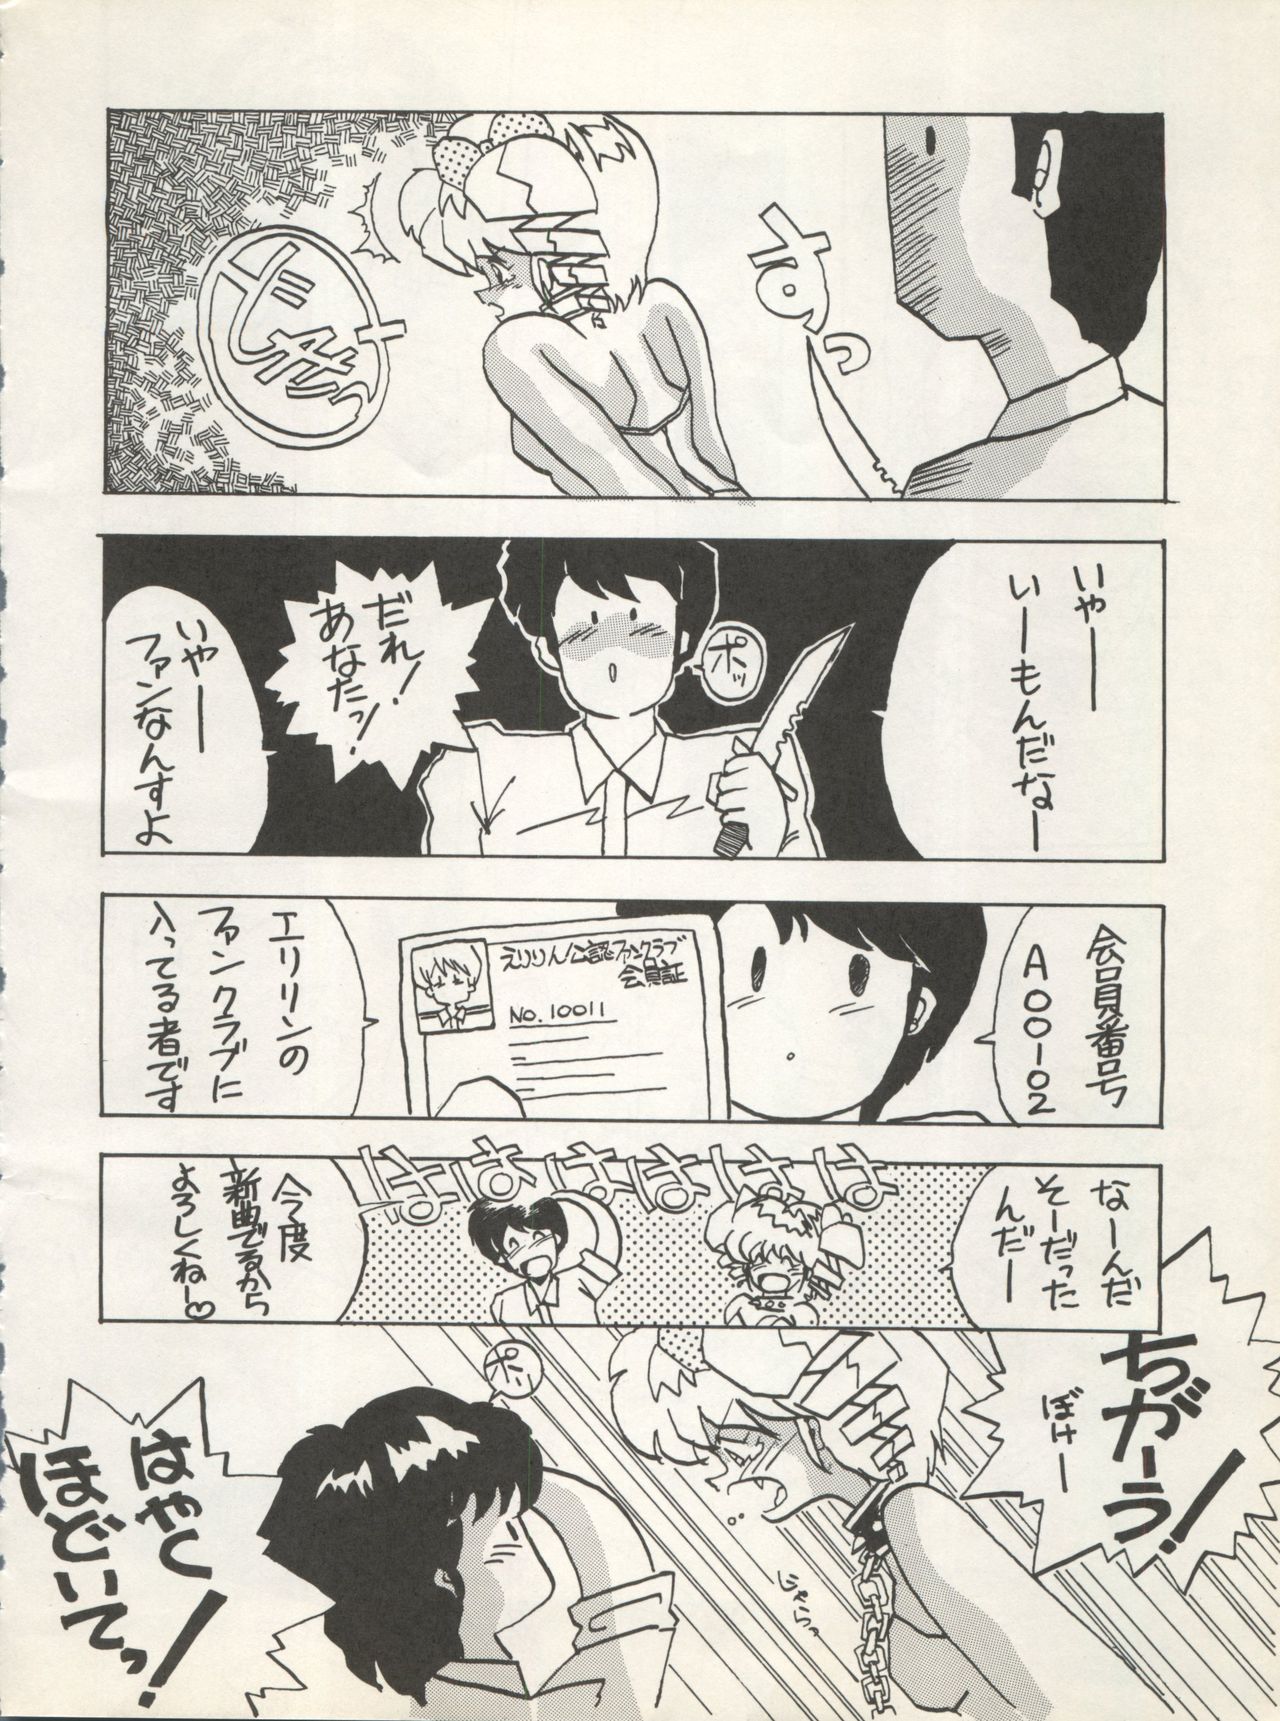 すっ
どきっ
いやー
いーもんだなー
ポッ
だれ!
あなたっ!
いやー
ファンなんすよ
会員番号
A00-02
えりりん公認ファンクラブ
会員証
No.10011
エリリンの
ファンクラブに
入ってる者です
なーんだ
そーだった
んだー
ははははははは
今度
新曲でるから
よろしくねー♡
ちがーう!
ぼけー
ポッ
じゃらっ
はやく
ほどいてっ!